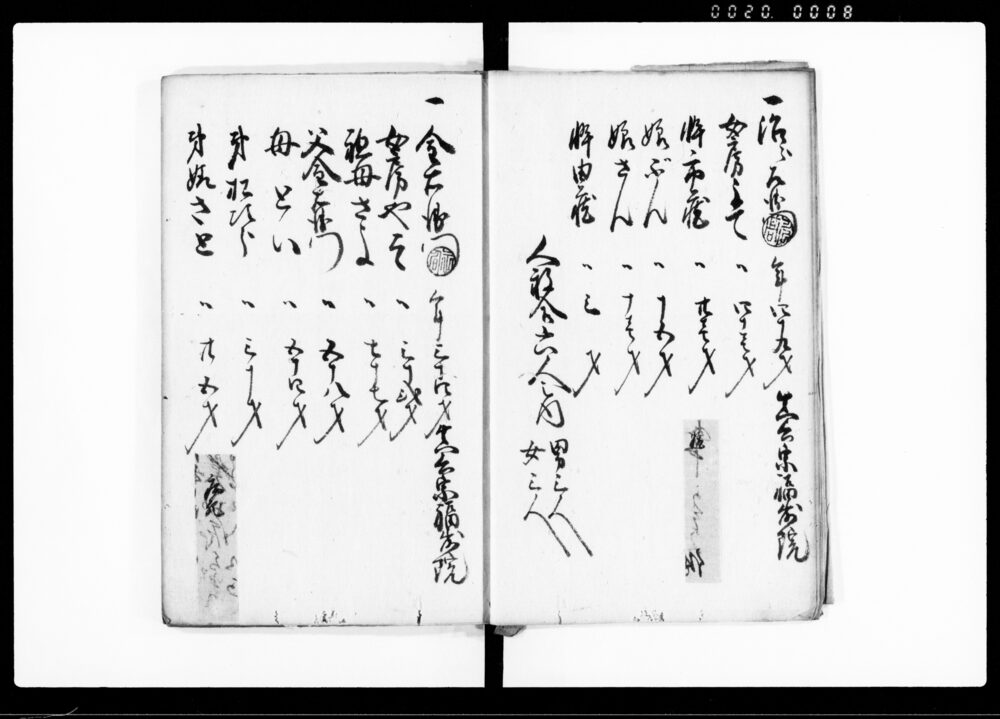 0020. 0008
一 治郎右衛門 年四十九才 真言宗福寿院
女房 〃 四十壱才
忰市蔵 〃 廿壱才
娘ぶん 〃 十五才
娘さん 〃 十壱才
忰由蔵 〃 三才
人数合六人之内 男三人
女三人
一 金右衛門 年三十四才 真言宗福寿院
女房やゑ 〃 三十弐才
祖母さよ 〃 七十七才
父金右衛門 〃 五十八才
母とい 〃 五十四才
弟松次郎 〃 三十才
弟嫁さと 〃 廿五才